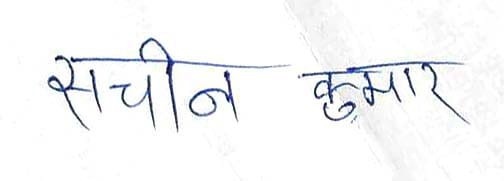 सचीन कुमार